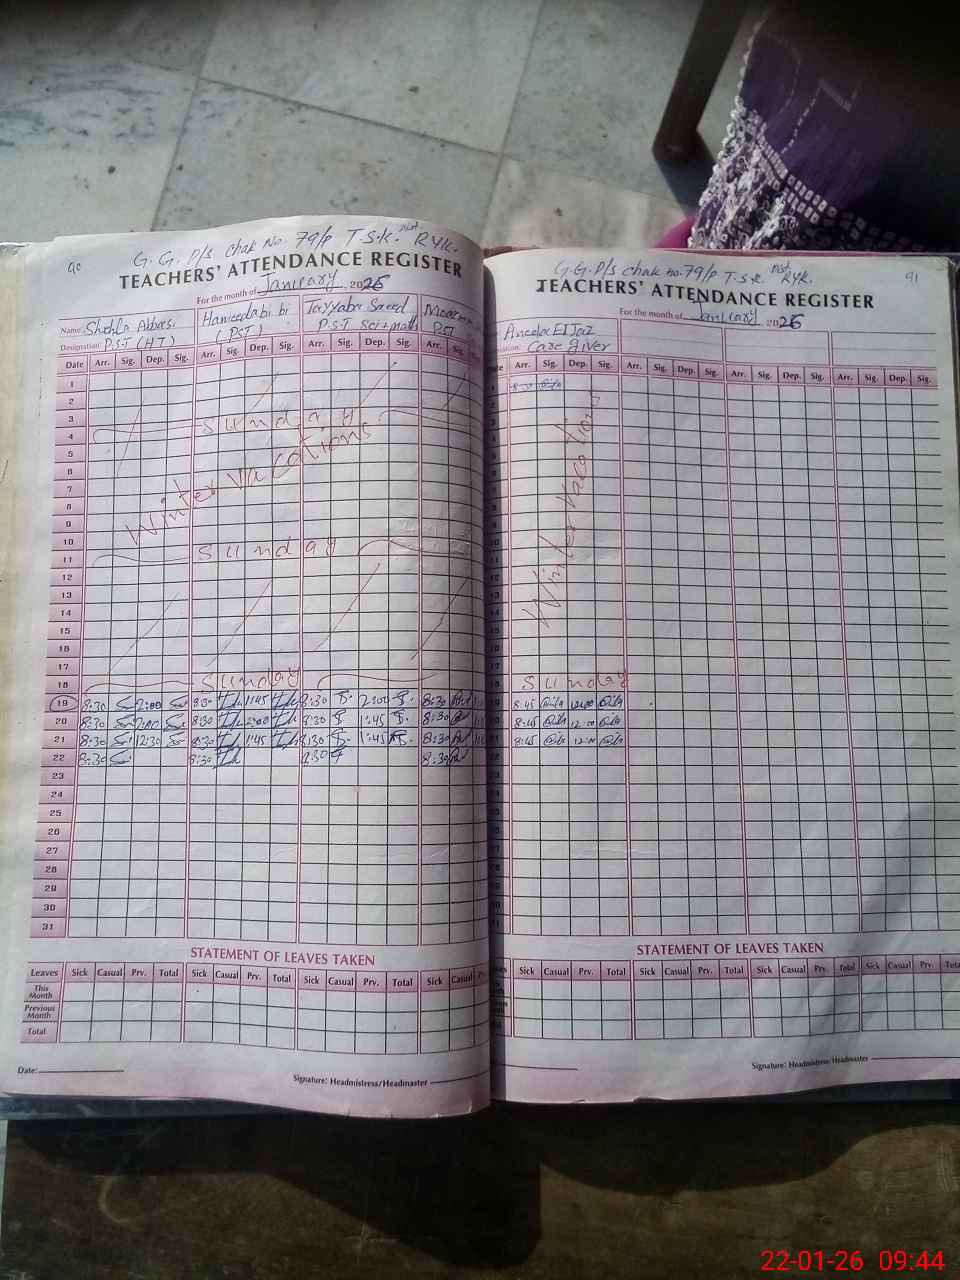 90
G.G. P/S Chak No. 79/P T.S.K. Dist. RYK.
TEACHERS' ATTENDANCE REGISTER
For the month of January, 2026
Name: Shehla Abbas Hameeda bi bi Tayyaba Saeed
Designation: P.S.T (HT) (PST) P.S.T Sci+math PST
Date Arr. Sig. Dep. Sig. Arr. Sig. Dep. Sig. Arr. Sig. Dep. Sig. Arr. Sig.
1
2
3
4 Sunday
5
6
7
Winter Vacations
8
9
10
11 Sunday
12
13
14
15
16
17
18 Sunday
19 8:30 2:00 8:30 1:45 8:30 2:00 8:30
20 8:30 2:00 8:30 2:00 8:30 1:45 8:30
21 8:30 12:30 8:30 1:45 8:30 1:45 8:30
22 8:30 8:30 8:30 8:30
23
24
25
26
27
28
29
30
31
STATEMENT OF LEAVES TAKEN
Leaves Sick Casual Prv. Total Sick Casual Prv. Total Sick Casual Prv. Total Sick Casual Prv.
This Month
Previous Month
Total
Date:
Signature: Headmistress/Headmaster
91
G.G. P/S Chak no. 79/P T.S.K. Dist RYK.
TEACHERS' ATTENDANCE REGISTER
For the month of January 2026
Aneela EIJaz
Care Giver
Arr. Sig. Dep. Sig. Arr. Sig. Dep. Sig. Arr. Sig. Dep. Sig. Arr. Sig. Dep. Sig.
8:30
Winter Vacations
Sunday
8:45 12:00
8:45 12:00
8:45 12:00
STATEMENT OF LEAVES TAKEN
Sick Casual Prv. Total Sick Casual Prv. Total Sick Casual Prv. Total Sick Casual Prv. Total
Signature: Headmistress/Headmaster
22-01-26 09:44